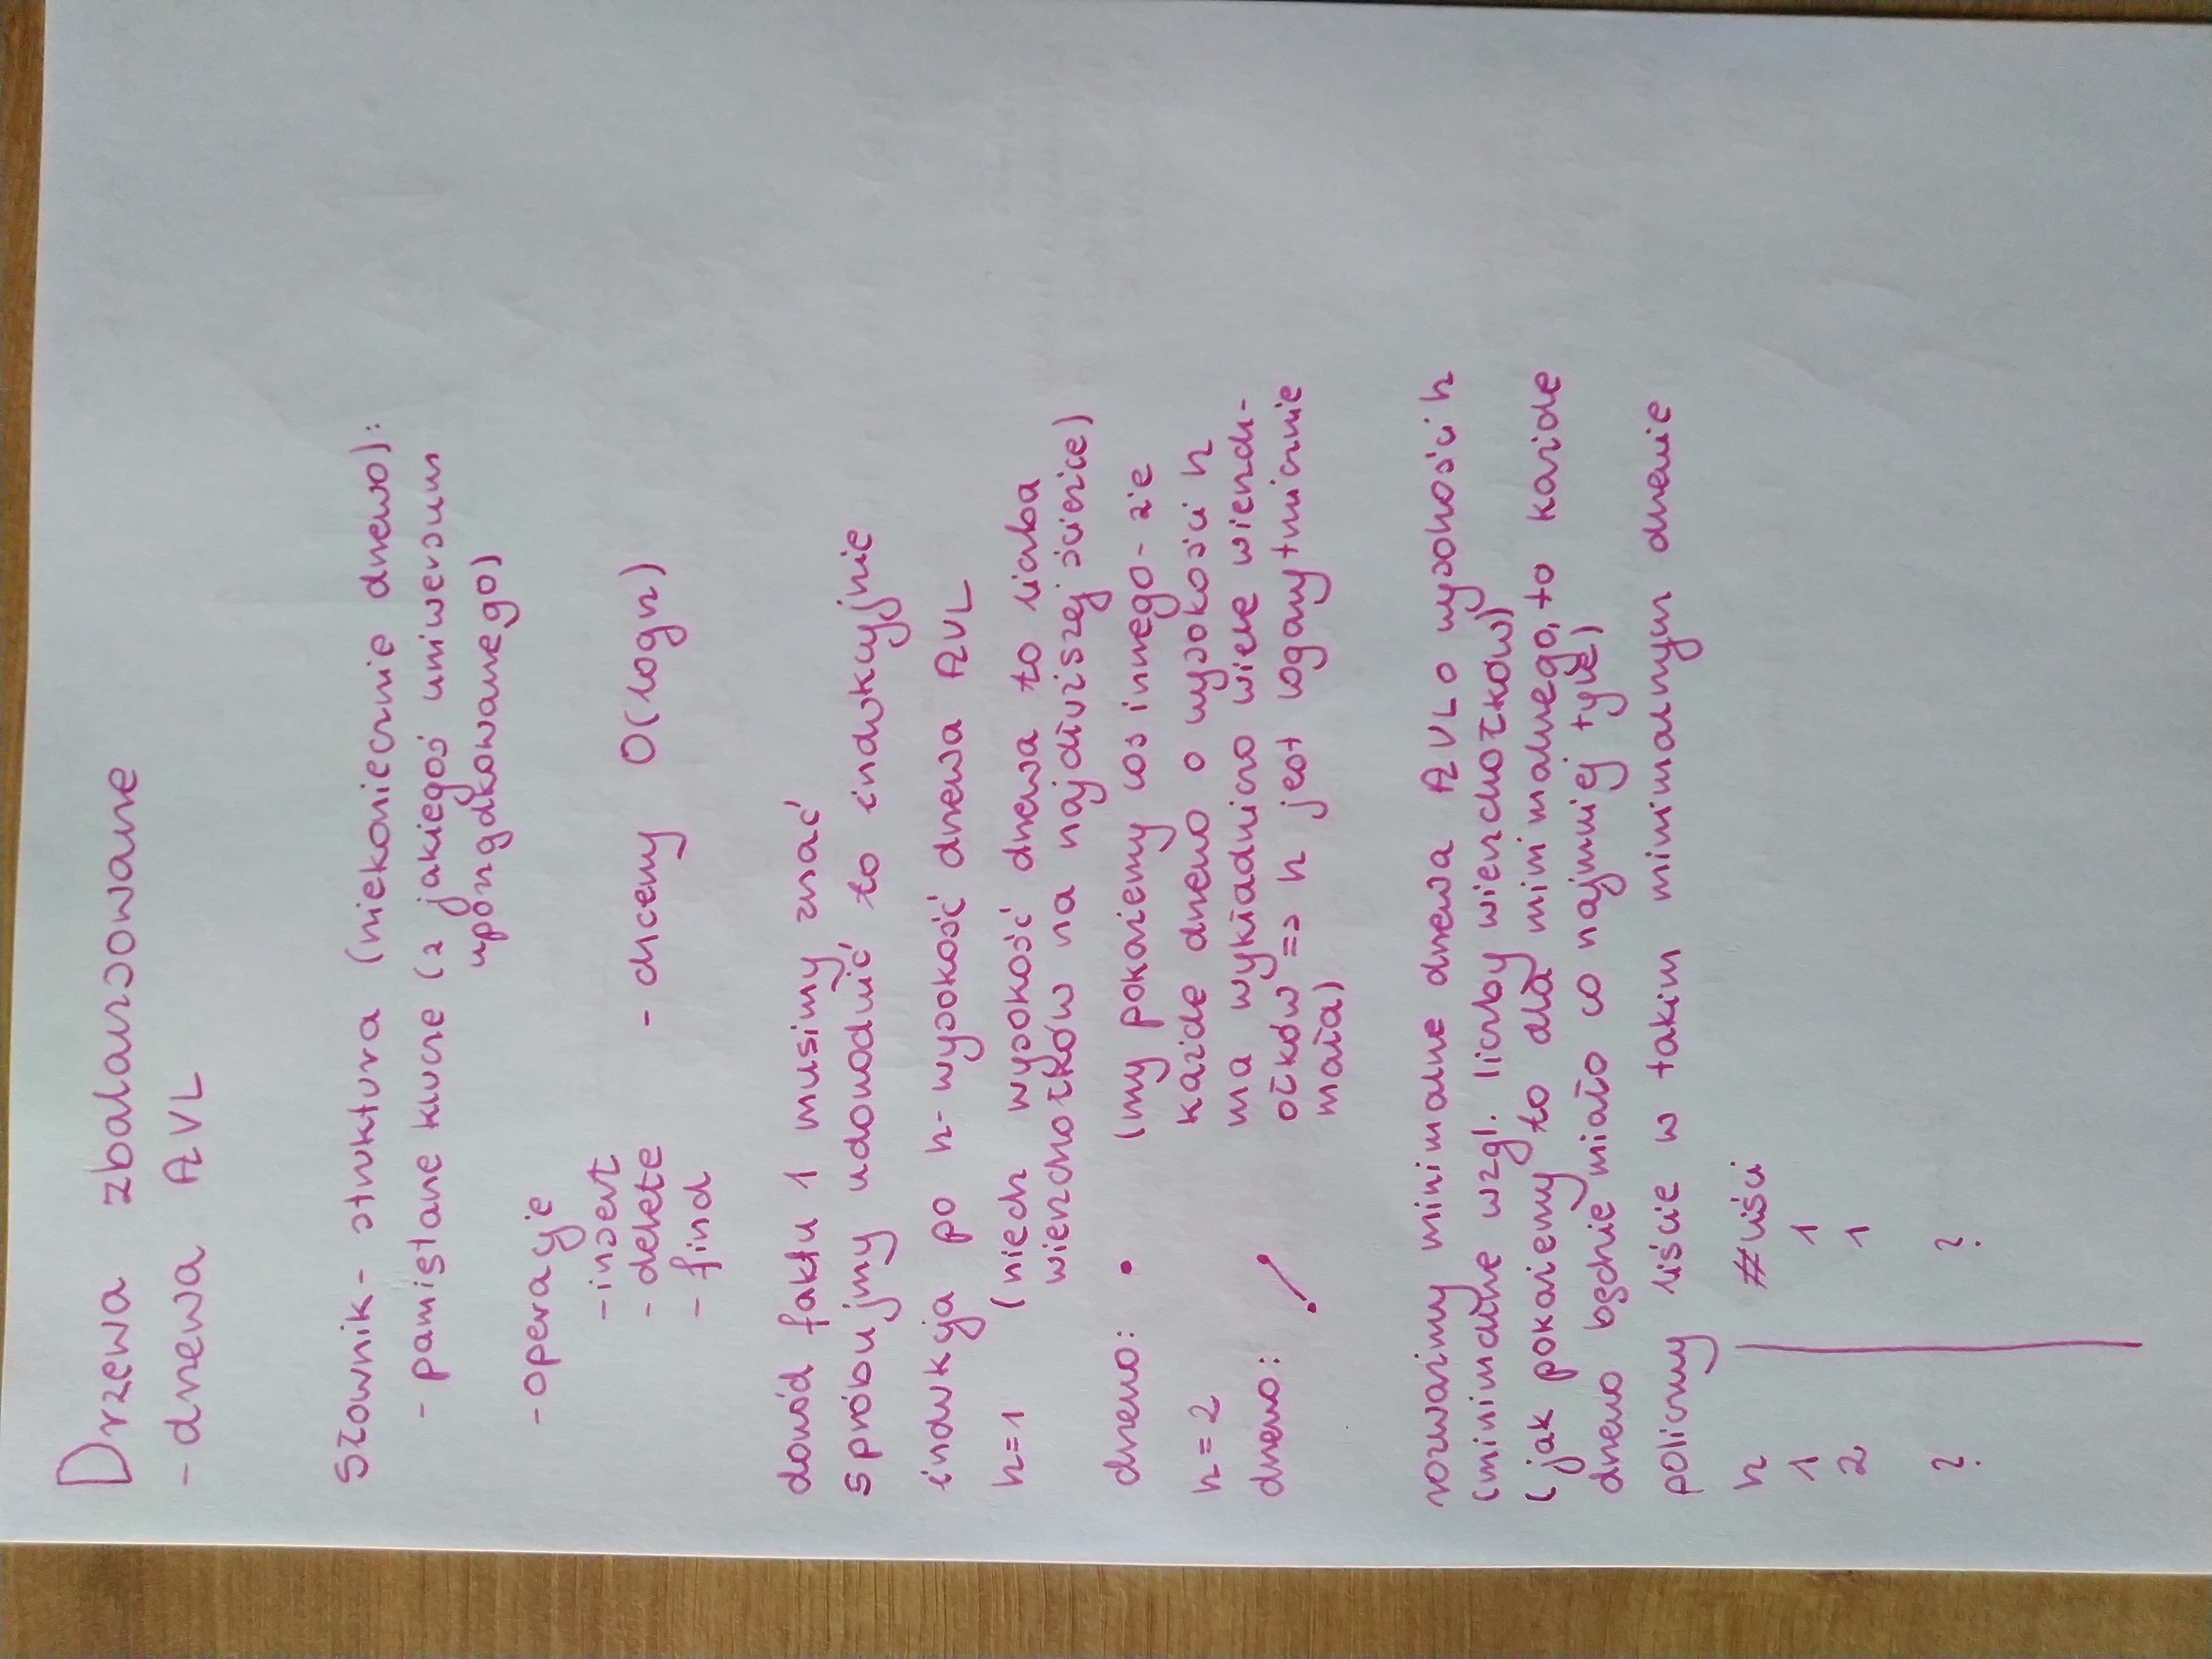 Drzewa zbalansowane
- drzewa AVL
Słownik - struktura (niekoniecznie drzewo):
- pamiętane klucze (z jakiegoś uniwersum
uporządkowanego)
- operacje
- insert
- delete - chcemy O(logn)
- find
dowód faktu 1 musimy znać
spróbujmy udowodnić to indukcyjnie
indukcja po h - wysokość drzewa AVL
h=1 (niech wysokość drzewa to liczba
wierzchołków na najdłuższej ścieżce)
drzewo: • (my pokażemy cos innego - że
każde drzewo o wysokości h
h=2
ma wykładniczo wiele wierzch-
drzewo:
ołków => h jest logarytmicznie
mała)
rozważmy minimalne drzewa AVL o wysokości h
(minimalne wzgl. liczby wierzchołków)
(jak pokażemy to dla minimalnego, to każde
drzewo będzie miało co najmniej tyle)
policzmy liście w takim minimalnym drzewie
h #liści
1 1
2 1
? ?